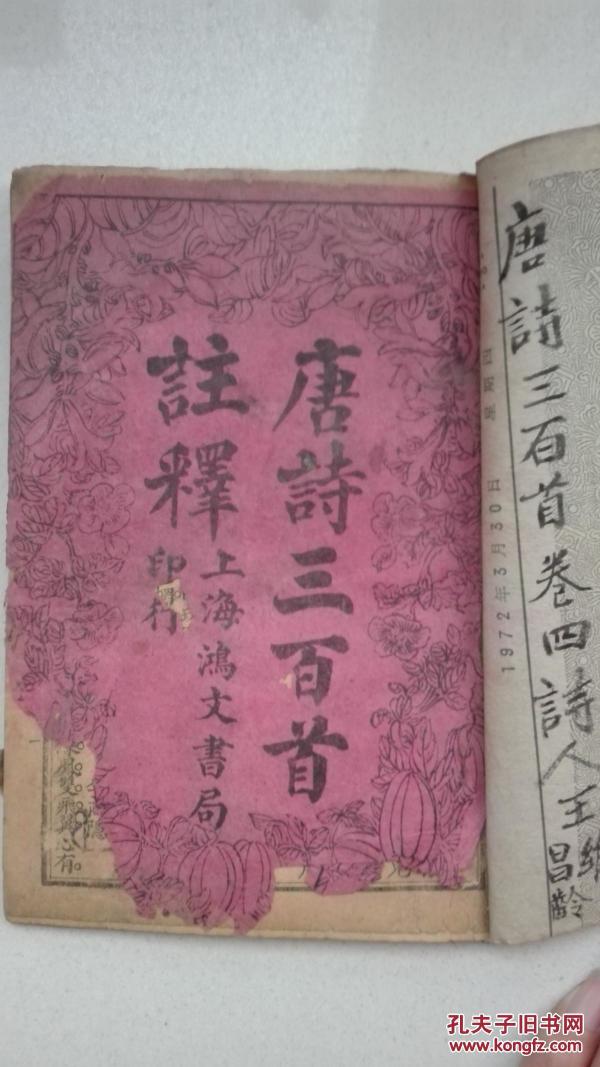 唐詩三百首
註釋
上海鴻文書局
印行
雙飛翼心有
唐詩三百首卷四詩人王維
昌齡
1972年3月30日
星期四
孔夫子旧书网
www.kongfz.com